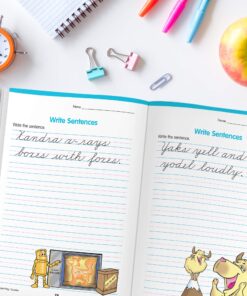 Name
Write Sentences
Write the sentence.
Xandra x-rays
boxes with foxes.
Name
Write Sentences
Write the sentence.
Yaks yell and
yodel loudly.